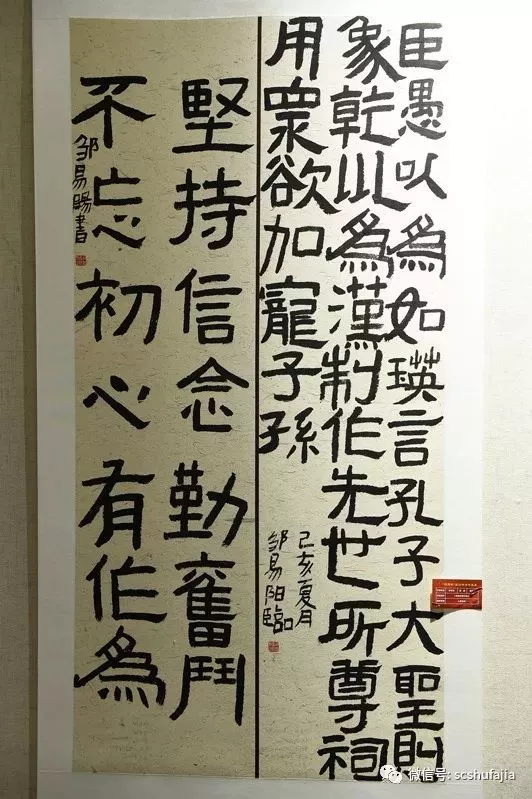 臣愚以為如瑛言孔子大聖則
象乾以為漢制作先世所尊祠
用眾欲加寵子孫
己亥夏月
邹易阳臨
堅持信念勤奮鬥
不忘初心有作為
邹易書
微信号: scshufajia